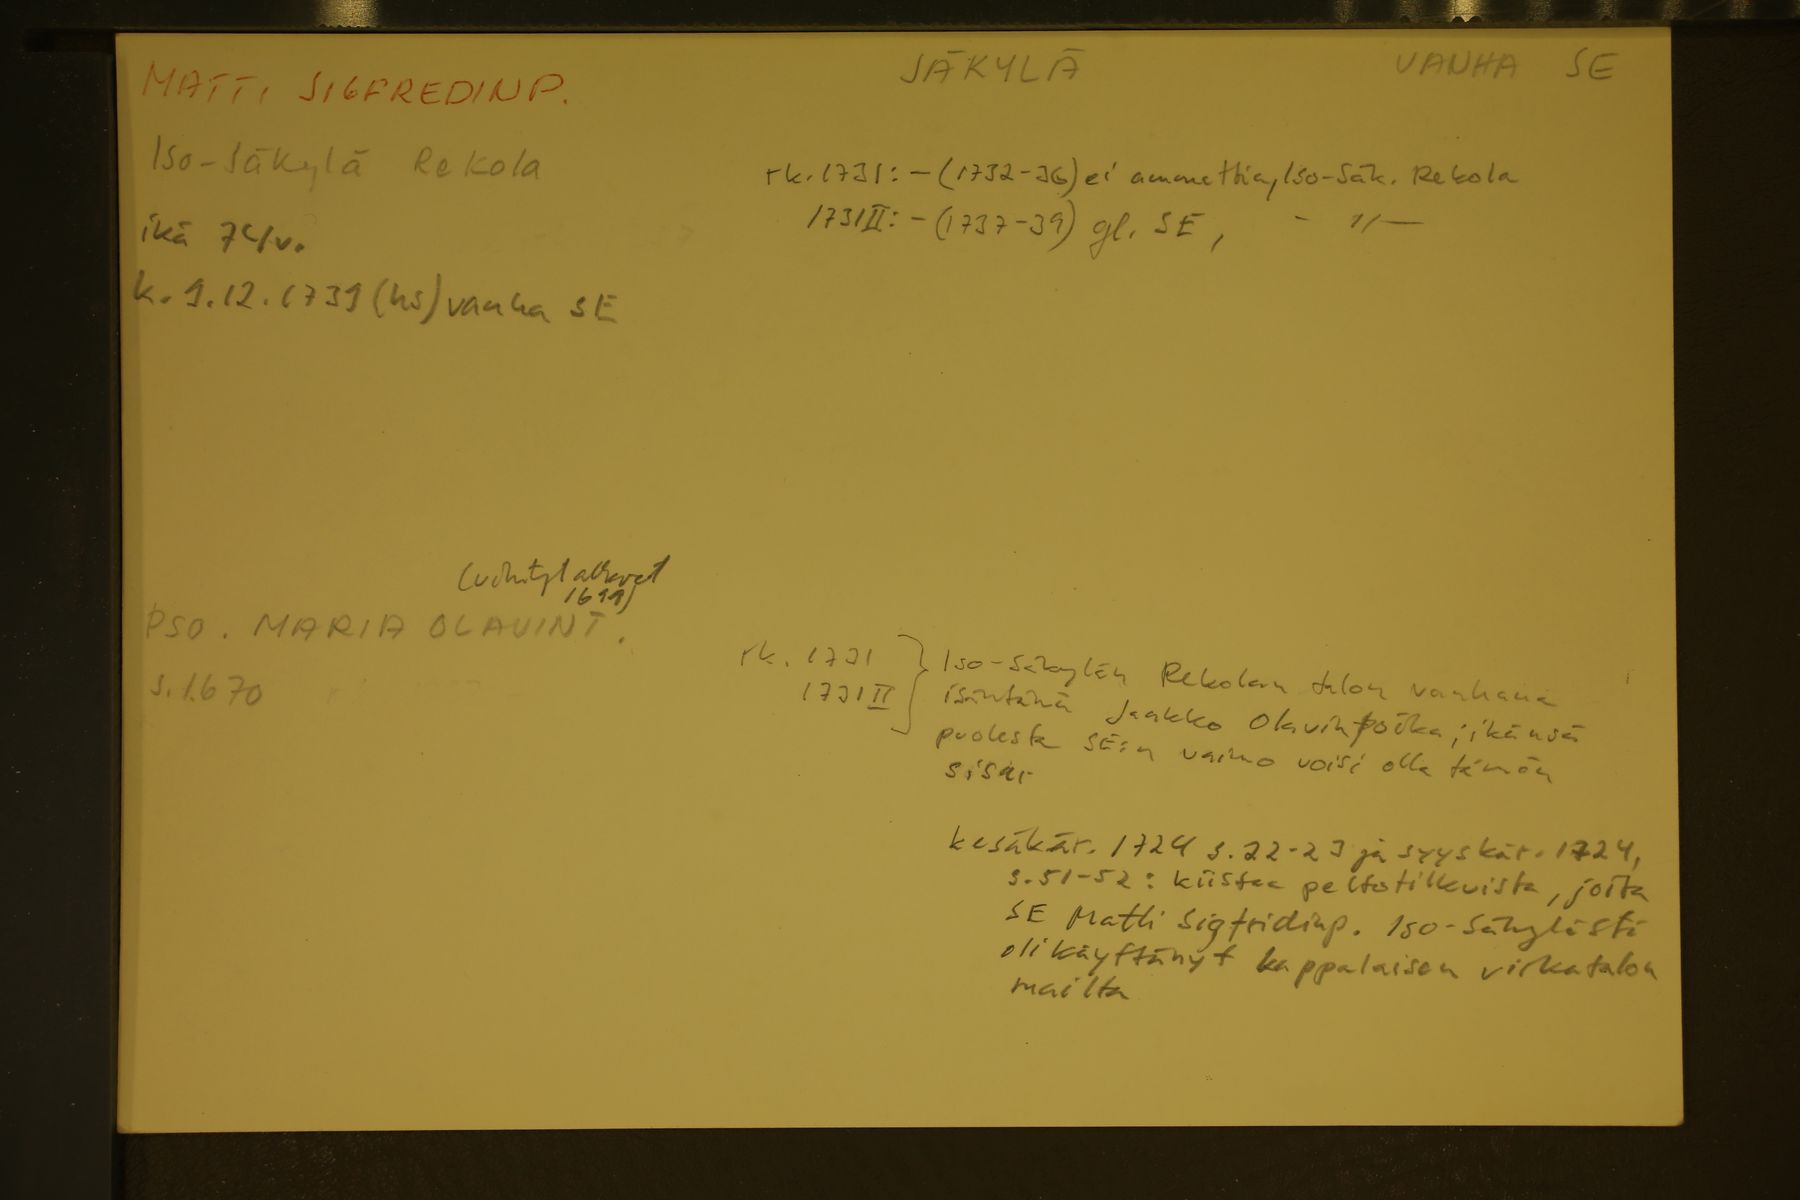 MATTI SIGFREDINP.
SÄKYLÄ
VANHA SE
Iso-Säkylä Rekola
ikä 74 v.
k. 9.12.1739 (hs) vanha SE
rk. 1731: - (1732-36) ei ammettia, Iso-Säk. Rekola
1731 II: - (1737-39) gl. SE, - 〃 -
(vihityt alkavat
1699)
PSO. MARIA OLAVINT.
s. 1670
rk. 1731
1731 II
Iso-Säkylän Rekolan talon vanhana
isäntänä Jaakko Olavinpoika; ikänsä
puolesta SE:n vaimo voisi olla tämän
sisar
kesäkär. 1724 s. 22-23 ja syyskär. 1724,
s. 51-52: kiistaa peltotilkuista, joita
SE Matti Sigfridinp. Iso-Säkylästä
oli käyttänyt kappalaisen virkatalon
mailta